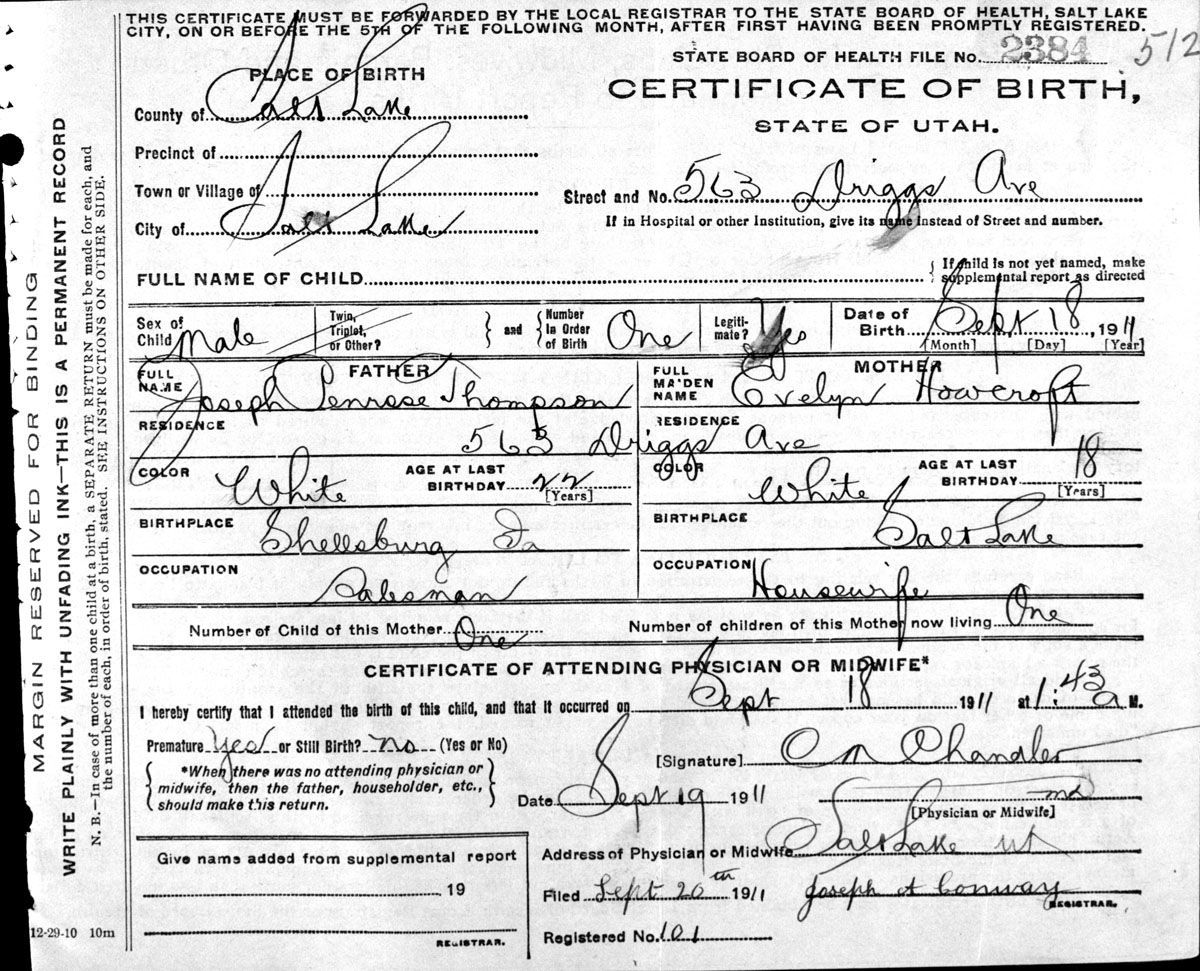 THIS CERTIFICATE MUST BE FORWARDED BY THE LOCAL REGISTRAR TO THE STATE BOARD OF HEALTH, SALT LAKE
CITY, ON OR BEFORE THE 5TH OF THE FOLLOWING MONTH, AFTER FIRST HAVING BEEN PROMPTLY REGISTERED.
STATE BOARD OF HEALTH FILE No. 2384 512
PLACE OF BIRTH
CERTIFICATE OF BIRTH,
County of Salt Lake
STATE OF UTAH.
Precinct of
Town or Village of
Street and No. 563 Driggs Ave
City of Salt Lake
If in Hospital or other Institution, give its name Instead of Street and number.
FULL NAME OF CHILD
{ If child is not yet named, make
supplemental report as directed
Sex of Child Male
Twin, Triplet, or Other? } and { Number In Order of Birth One
Legitimate? Yes
Date of Birth Sept 18, 1911
[Month] [Day] [Year]
FATHER
FULL NAME Joseph Penrose Thompson
MOTHER
FULL MAIDEN NAME Evelyn Howcroft
RESIDENCE
RESIDENCE
563 Driggs Ave
COLOR White
AGE AT LAST BIRTHDAY 22 [Years]
COLOR White
AGE AT LAST BIRTHDAY 18 [Years]
BIRTHPLACE Shellsburg Ia
BIRTHPLACE Salt Lake
OCCUPATION Salesman
OCCUPATION Housewife
Number of Child of this Mother One
Number of children of this Mother now living One
CERTIFICATE OF ATTENDING PHYSICIAN OR MIDWIFE*
I hereby certify that I attended the birth of this child, and that it occurred on Sept 18 1911 at 1:43 a M.
Premature Yes or Still Birth? no (Yes or No)
[Signature] Chandler
{ *When there was no attending physician or
midwife, then the father, householder, etc.,
should make this return. }
Date Sept 19 1911
md
[Physician or Midwife]
Address of Physician or Midwife Salt Lake Ut
Give name added from supplemental report
19
REGISTRAR.
Filed Sept 20th 1911 Joseph A Conway
REGISTRAR.
Registered No. 101
12-29-10 10m
MARGIN RESERVED FOR BINDING
WRITE PLAINLY WITH UNFADING INK—THIS IS A PERMANENT RECORD
N. B.—In case of more than one child at a birth, a SEPARATE RETURN must be made for each, and
the number of each, in order of birth, stated. SEE INSTRUCTIONS ON OTHER SIDE.